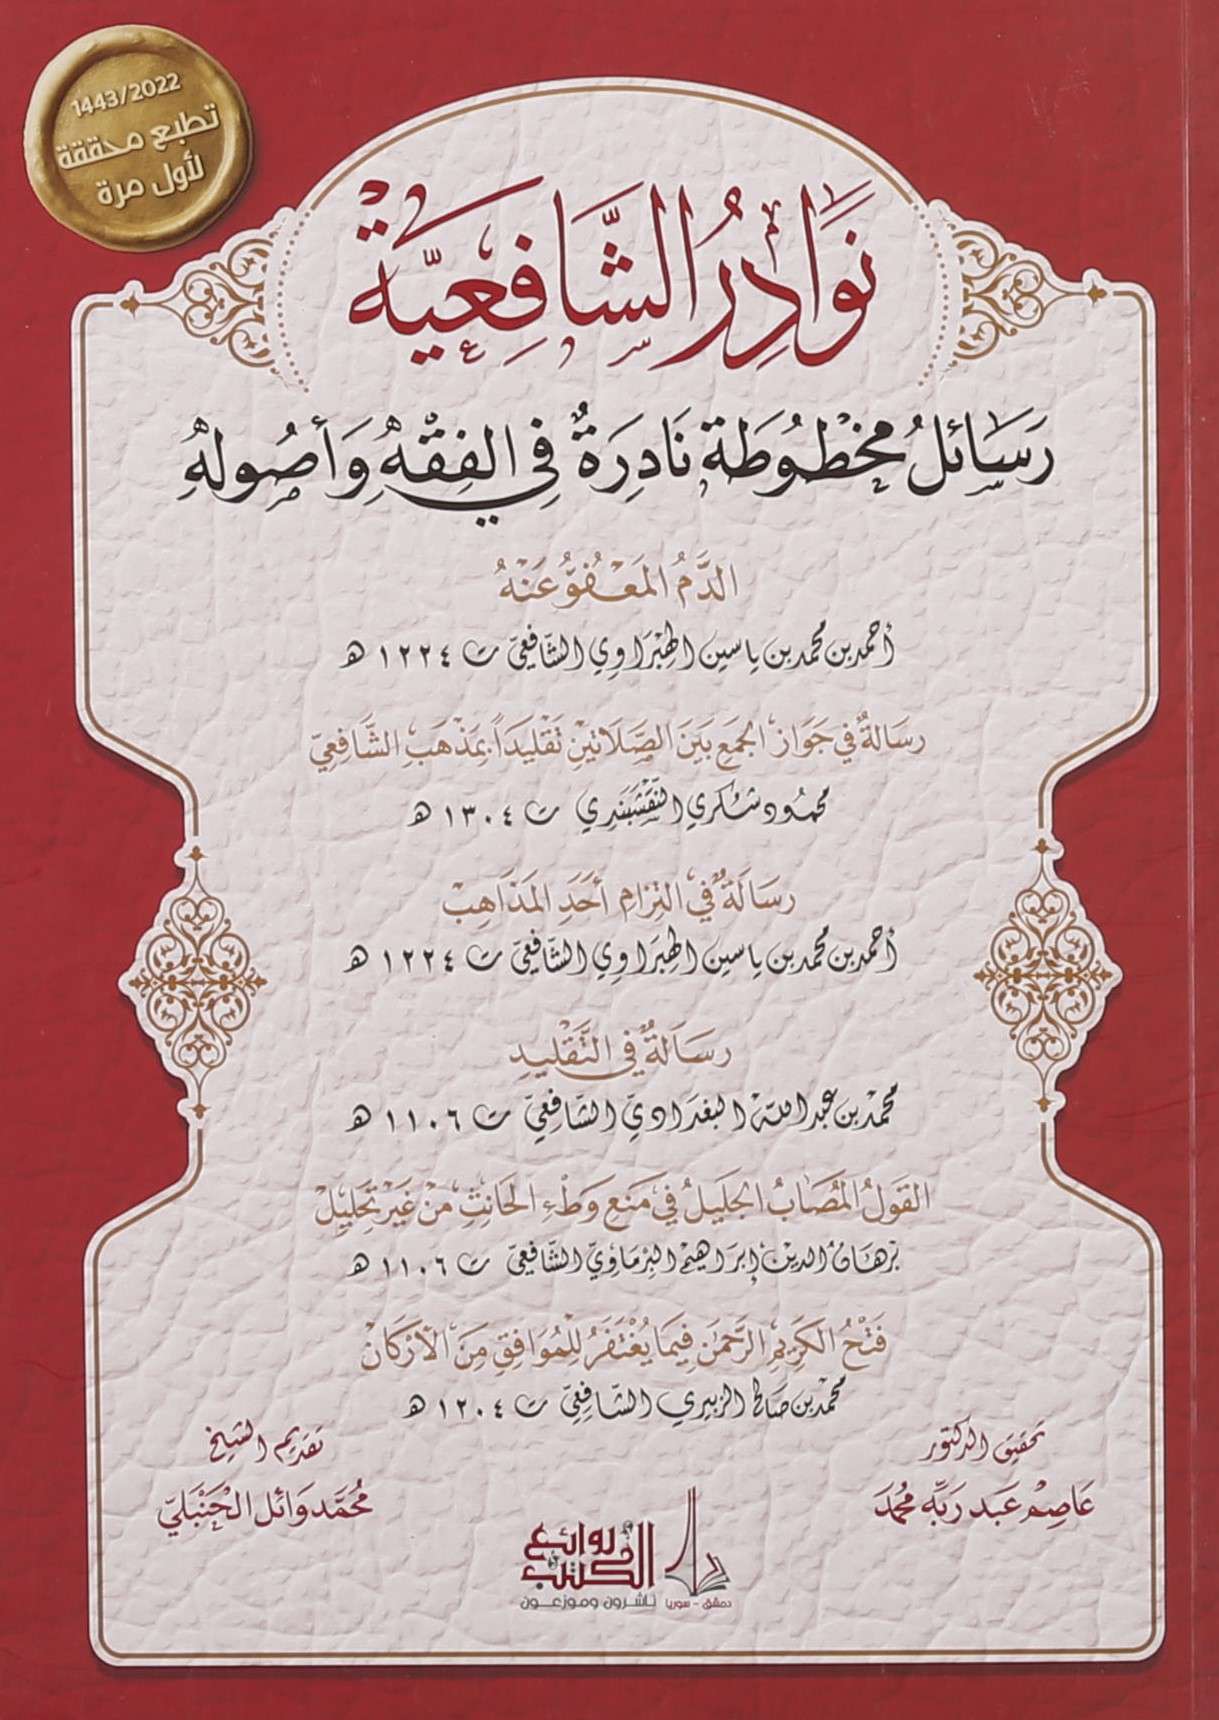 1443/2022
تطبع محققة
لأول مرة
نَوَادِرُ الشَّافِعِيَّة
رَسَائلُ مَخْطُوطَة نَادِرَةٌ فِي الفِقْهِ وَأُصُولهِ
الدَّمُ المَعْفُوُّ عَنْهُ
أحمد بن محمد بن ياسين الهِبْرَاوِي الشَّافِعِيّ ت ١٢٢٤ هـ
رسَالةٌ في جَوَاز الجَمعِ بَيَن الصَّلَاتَيْنِ تَقْلِيدَاً بمَذْهَبِ الشَّافِعِيّ
محمُود شكري النَّقْشَبَندِي ت ١٣٠٤ هـ
رسَالَةٌ في التِزَامِ أحَدِ المَذَاهِبْ
أحمد بن محمد بن ياسين الهِبْرَاوِي الشَّافِعِيّ ت ١٢٢٤ هـ
رسَالَةٌ في التَّقْليدِ
محمْد بن عَبد اللّه البغدَادِيّ الشَّافِعِيّ ت ١١٠٦ هـ
القَولُ المُصَابُ الجَليلُ في مَنعِ وَطْءِ الحَانِثِ مْن غَيْرِ تَحْليِلْ
بُرْهَانُ الدين إبرَاهِيْم البِرْمَاوِيّ الشَّافِعِيّ ت ١١٠٦ هـ
فَتْحُ الكَرِيمِ الرَّحمَنِ فيمَا يُغْتَفَرُ لِلْمُوَافِقِ مِنَ الأَرْكَانْ
محمْد بن صَالح الزبيري الشَّافِعِيّ ت ١٢٠٤ هـ
تحقيق الدكتور
عَاصِمْ عَبد رَبِّه محُمَّد
تقديم الشيخ
مُحَمَّد وَائل الحَنْبَليّ
دار
روائع
الكتب
دمشق - سوريا
ناشرون وموزعون